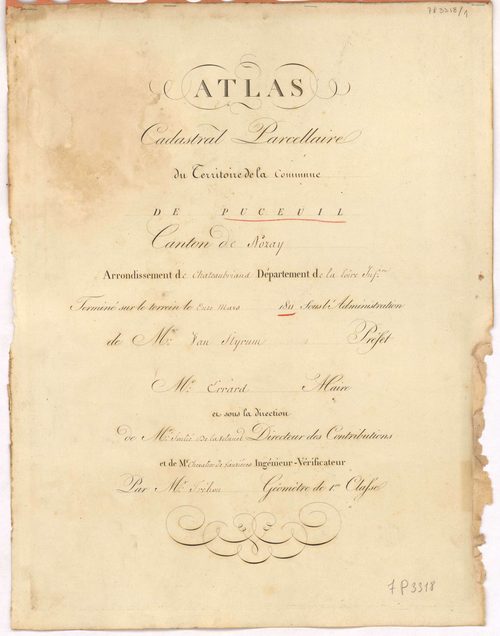 7P3318/1
ATLAS
Cadastral Parcellaire
du Territoire de la Commune
DE PUCEUIL
Canton de Nozay
Arrondissement de Chateaubriand Département de la Loire Infre
Terminé sur le terrein le Onze Mars 1811 Sous l'Administration
de Mr. Van Styrum Préfet
Mr. Errard Maire
et sous la direction
de Mr. Directeur des Contributions
et de Mr. Chevalier de Ingénieur-Vérificateur
Par Mr. Géomètre de 1re Classe
7P3318